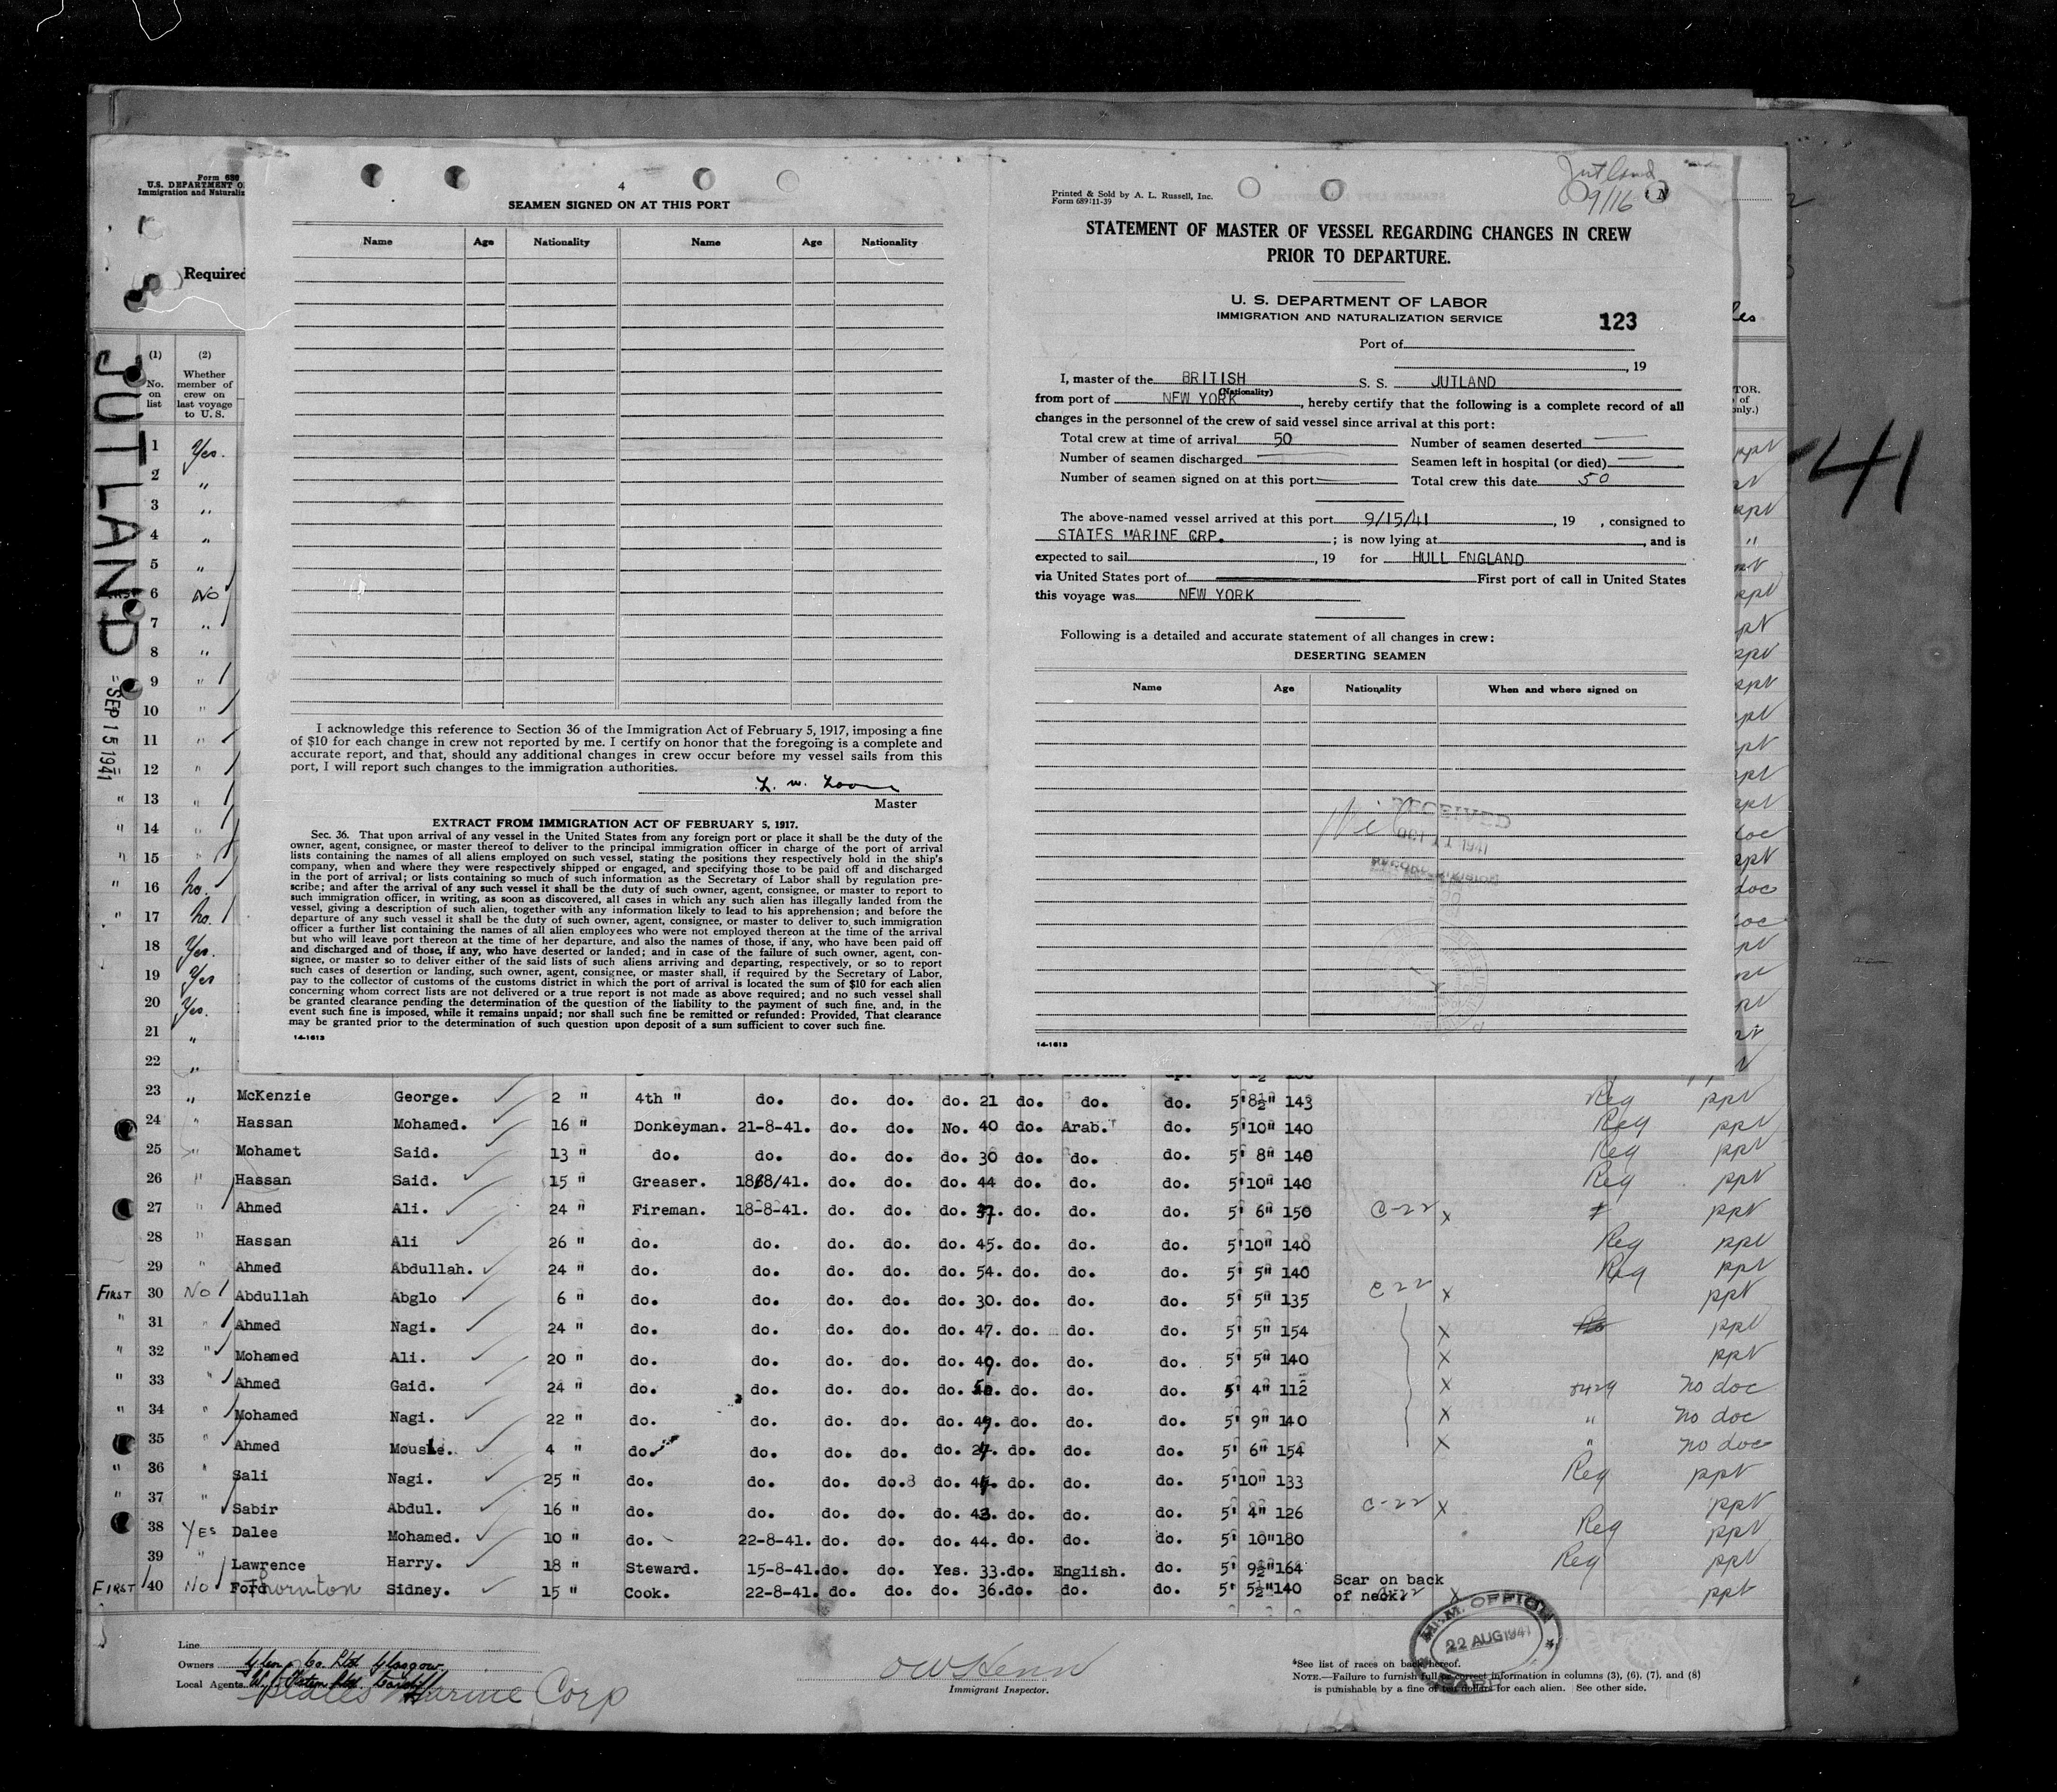 Form 689
U.S. DEPARTMENT O
Immigration and Naturaliz
Required
JUTLAND
SEP 15 1941
(1)
No.
on
list
(2)
Whether
member of
crew on
last voyage
to U. S.
1 Yes.
2 "
3 "
4 "
5 "
6 No
7 "
8 "
9 "
10 "
11 "
12 "
" 13 "
" 14 "
" 15 "
" 16 no.
" 17 no.
18 Yes.
19 Yes
20 Yes.
21 "
22 "
4
SEAMEN SIGNED ON AT THIS PORT
Name Age Nationality Name Age Nationality
I acknowledge this reference to Section 36 of the Immigration Act of February 5, 1917, imposing a fine
of $10 for each change in crew not reported by me. I certify on honor that the foregoing is a complete and
accurate report, and that, should any additional changes in crew occur before my vessel sails from this
port, I will report such changes to the immigration authorities.
Master
EXTRACT FROM IMMIGRATION ACT OF FEBRUARY 5, 1917.
Sec. 36. That upon arrival of any vessel in the United States from any foreign port or place it shall be the duty of the
owner, agent, consignee, or master thereof to deliver to the principal immigration officer in charge of the port of arrival
lists containing the names of all aliens employed on such vessel, stating the positions they respectively hold in the ship's
company, when and where they were respectively shipped or engaged, and specifying those to be paid off and discharged
in the port of arrival; or lists containing so much of such information as the Secretary of Labor shall by regulation pre-
scribe; and after the arrival of any such vessel it shall be the duty of such owner, agent, consignee, or master to report to
such immigration officer, in writing, as soon as discovered, all cases in which any such alien has illegally landed from the
vessel, giving a description of such alien, together with any information likely to lead to his apprehension; and before the
departure of any such vessel it shall be the duty of such owner, agent, consignee, or master to deliver to such immigration
officer a further list containing the names of all alien employees who were not employed thereon at the time of the arrival
but who will leave port thereon at the time of her departure, and also the names of those, if any, who have been paid off
and discharged and of those, if any, who have deserted or landed; and in case of the failure of such owner, agent, con-
signee, or master so to deliver either of the said lists of such aliens arriving and departing, respectively, or so to report
such cases of desertion or landing, such owner, agent, consignee, or master shall, if required by the Secretary of Labor,
pay to the collector of customs of the customs district in which the port of arrival is located the sum of $10 for each alien
concerning whom correct lists are not delivered or a true report is not made as above required; and no such vessel shall
be granted clearance pending the determination of the question of the liability to the payment of such fine, and, in the
event such fine is imposed, while it remains unpaid; nor shall such fine be remitted or refunded: Provided, That clearance
may be granted prior to the determination of such question upon deposit of a sum sufficient to cover such fine.
14-1613
Jutland
9/16
N
Printed & Sold by A. L. Russell, Inc.
Form 689:11-39
STATEMENT OF MASTER OF VESSEL REGARDING CHANGES IN CREW
PRIOR TO DEPARTURE.
U. S. DEPARTMENT OF LABOR
IMMIGRATION AND NATURALIZATION SERVICE
123
Port of
, 19
I, master of the BRITISH S. S. JUTLAND
(Nationality)
from port of NEW YORK, hereby certify that the following is a complete record of all
changes in the personnel of the crew of said vessel since arrival at this port:
Total crew at time of arrival 50 Number of seamen deserted —
Number of seamen discharged — Seamen left in hospital (or died) —
Number of seamen signed on at this port — Total crew this date 50
The above-named vessel arrived at this port 9/15/41, 19 , consigned to
STATES MARINE CRP. ; is now lying at , and is
expected to sail , 19 for HULL ENGLAND
via United States port of First port of call in United States
this voyage was NEW YORK
Following is a detailed and accurate statement of all changes in crew:
DESERTING SEAMEN
Name Age Nationality When and where signed on
Nil
RECEIVED
14-1613
41
23 " McKenzie George. 2 " 4th " do. do. do. do. 21 do. do. do. 5'8½" 143 Reg ppt
24 " Hassan Mohamed. 16 " Donkeyman. 21-8-41. do. do. No. 40 do. Arab. do. 5'10" 140 Reg ppt
25 " Mohamet Said. 13 " do. do. do. do. do. 30 do. do. do. 5' 8" 140 Reg ppt
26 " Hassan Said. 15 " Greaser. 18/8/41. do. do. do. 44 do. do. do. 5'10" 140 Reg ppt
27 " Ahmed Ali. 24 " Fireman. 18-8-41. do. do. do. 37. do. do. do. 5' 6" 150 C-22 x ppt
28 " Hassan Ali 26 " do. do. do. do. do. 45. do. do. do. 5'10" 140 Reg ppt
29 " Ahmed Abdullah. 24 " do. do. do. do. do. 54. do. do. do. 5' 5" 140 Reg ppt
FIRST 30 No Abdullah Abglo 6 " do. do. do. do. do. 30. do. do. do. 5' 5" 135 C 22 x ppt
" 31 " Ahmed Nagi. 24 " do. do. do. do. do. 47. do. do. do. 5' 5" 154 x ppt
" 32 " Mohamed Ali. 20 " do. do. do. do. do. 49. do. do. do. 5' 5" 140 x ppt
" 33 " Ahmed Gaid. 24 " do. do. do. do. do. do. do. do. 5' 4" 112 x no doc
" 34 " Mohamed Nagi. 22 " do. do. do. do. do. 49. do. do. do. 5' 9" 140 x " no doc
" 35 " Ahmed 4 " do. do. do. do. do. do. do. do. 5' 6" 154 x " no doc
" 36 " Sali Nagi. 25 " do. do. do. do. do. do. do. do. 5'10" 133 Reg ppt
" 37 " Sabir Abdul. 16 " do. do. do. do. do. 43. do. do. do. 5' 4" 126 C-22 x ppt
38 YES Dalee Mohamed. 10 " do. 22-8-41. do. do. do. 44. do. do. do. 5' 10" 180 Reg ppt
39 " Lawrence Harry. 18 " Steward. 15-8-41. do. do. Yes. 33. do. English. do. 5' 9½" 164 Reg ppt
FIRST 40 No Ford Thornton Sidney. 15 " Cook. 22-8-41. do. do. do. 36. do. do. do. 5' 5½" 140 Scar on back of neck. C-22 x ppt
Line
Owners Glen & Co. Ltd Glasgow
Local Agents
States Marine Corp
Immigrant Inspector.
22 AUG 1941
*See list of races on back hereof.
NOTE.—Failure to furnish full or correct information in columns (3), (6), (7), and (8)
is punishable by a fine of ten dollars for each alien. See other side.